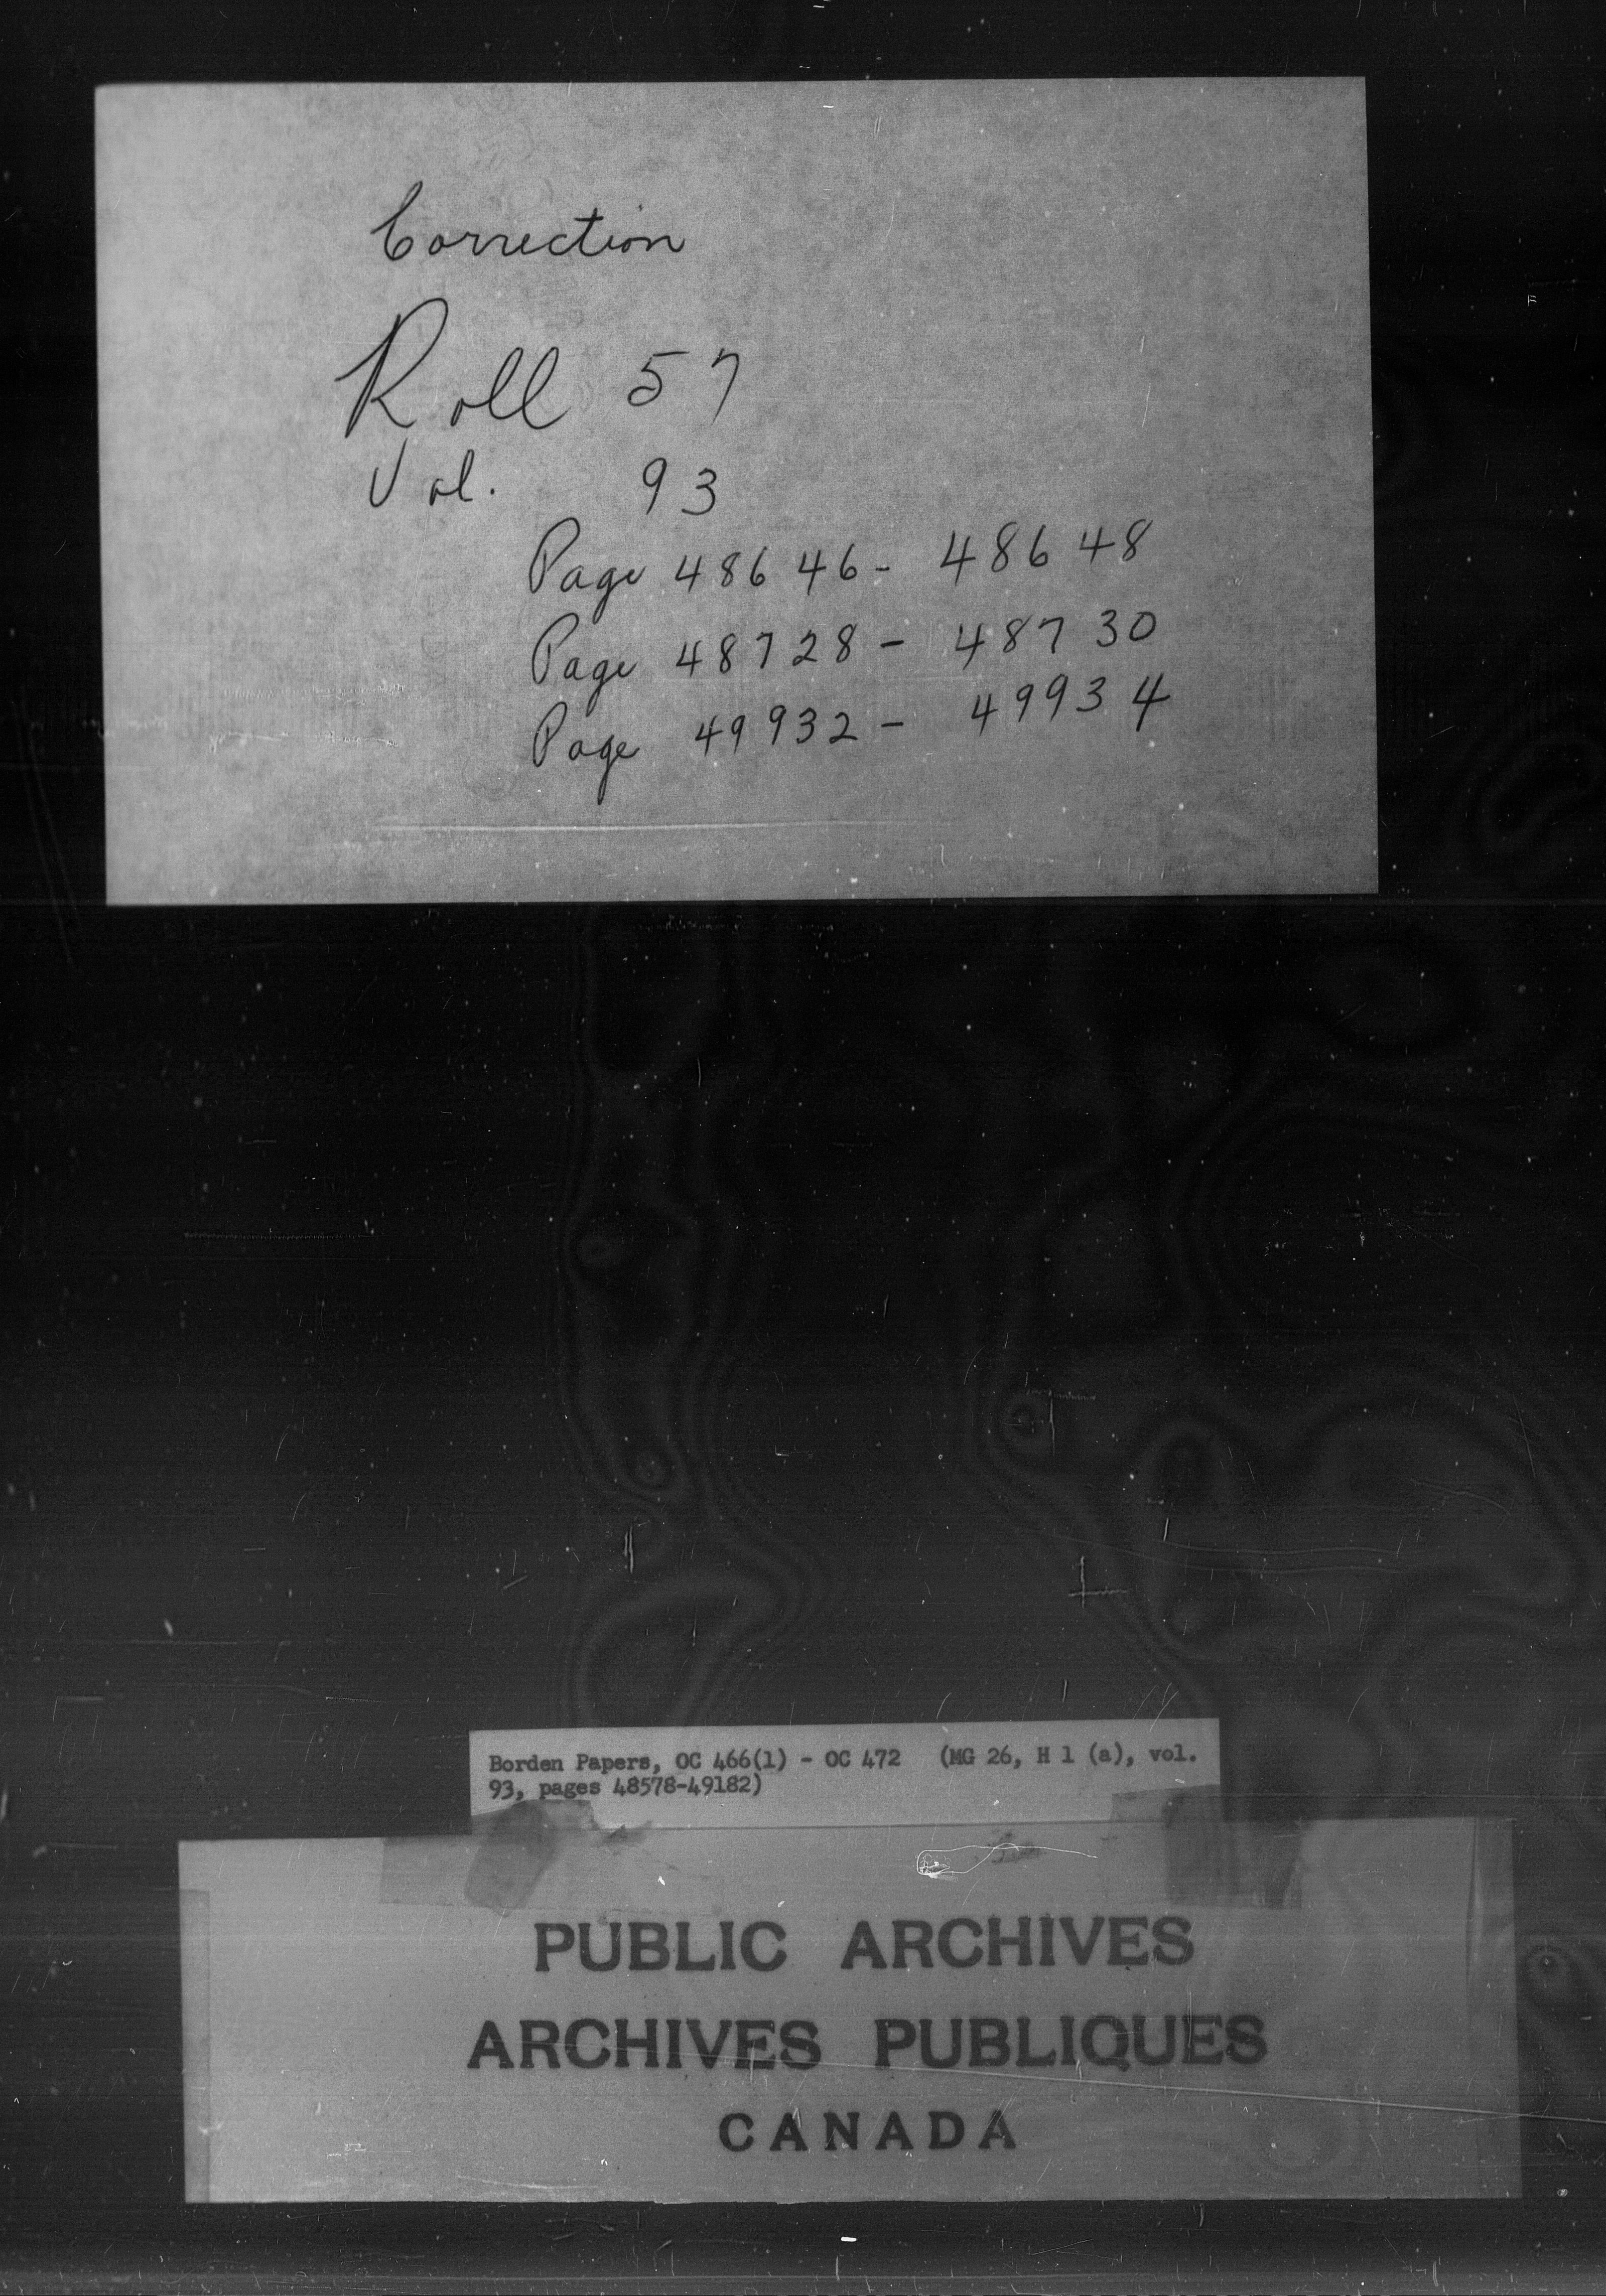 Correction
Roll 57
Vol. 93
Page 48646 - 48648
Page 48728 - 48730
Page 49932 - 49934
Borden Papers, OC 466(1) - OC 472 (MG 26, H 1 (a), vol.
93, pages 48578-49182)
PUBLIC ARCHIVES
ARCHIVES PUBLIQUES
CANADA